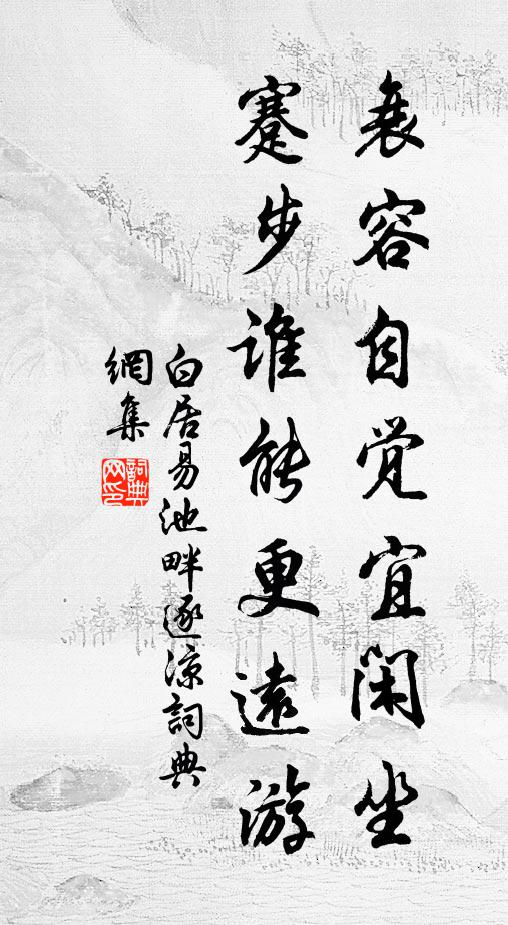 衰容自觉宜闲坐
蹇步谁能更远游
白居易池畔逐凉詞典
網集
詞典网印